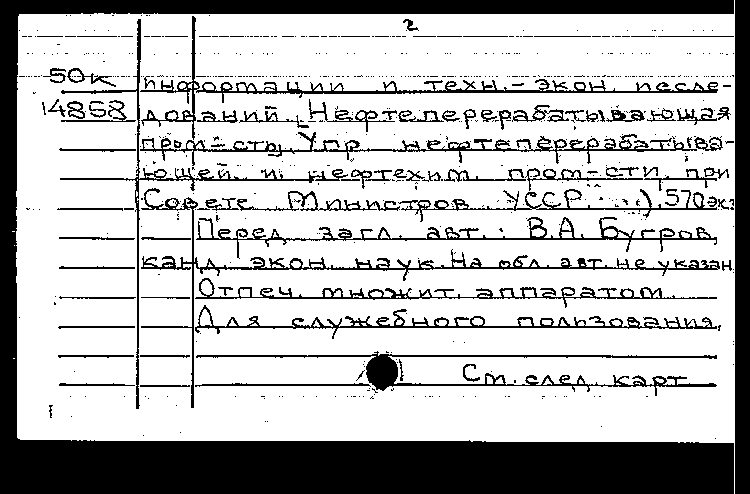 2
50к информации и техн.-экон. иссле-
14858 дований. Нефтеперерабатывающая
пром-сть. Упр. нефтеперерабатыва-
ющей и нефтехим. пром-сти при
Совете Министров УССР ...). 570 экз
Перед загл. авт.: В.А. Бугров,
канд. экон. наук. На обл. авт. не указан
Отпеч. множит. аппаратом.
Для служебного пользования.
См. след. карт